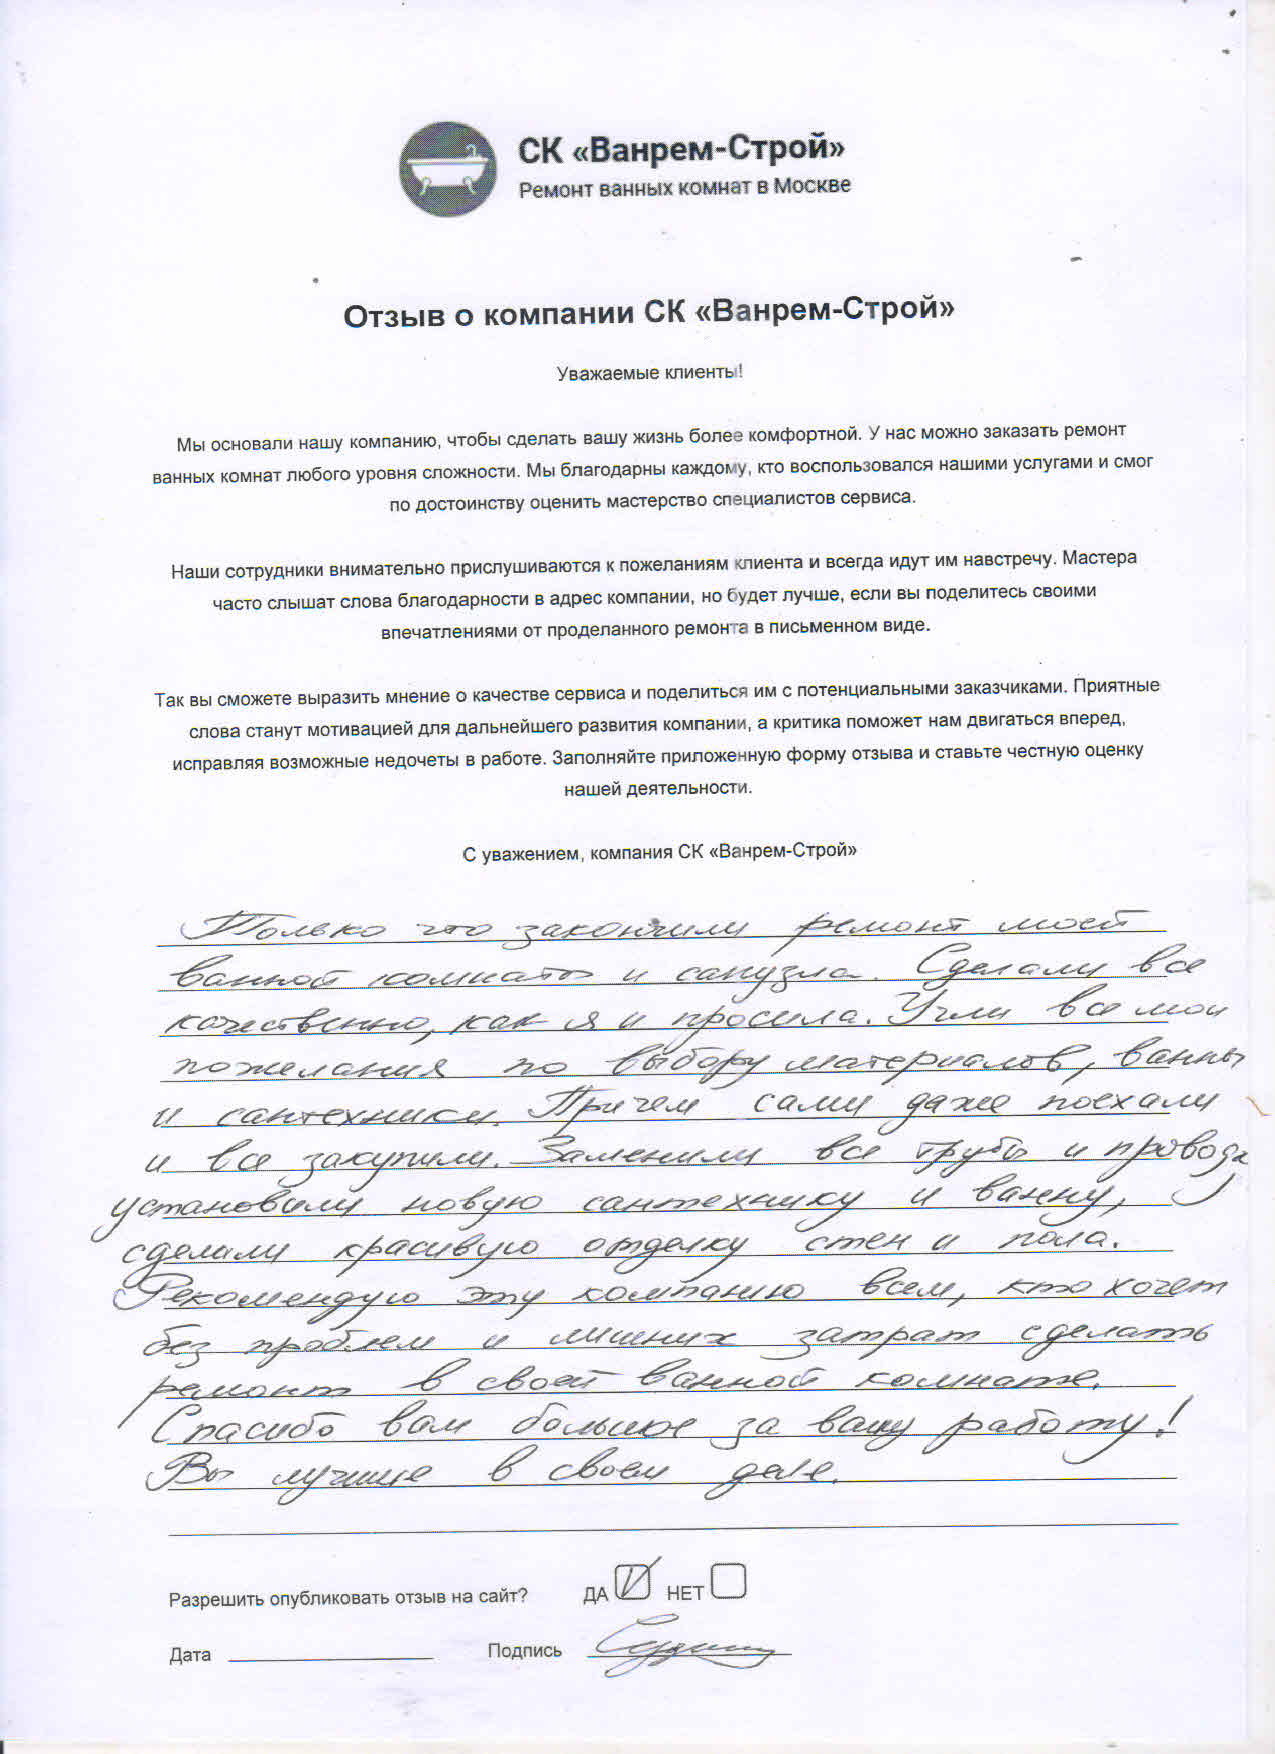 СК «Ванрем-Строй»
Ремонт ванных комнат в Москве
Отзыв о компании СК «Ванрем-Строй»
Уважаемые клиенты!
Мы основали нашу компанию, чтобы сделать вашу жизнь более комфортной. У нас можно заказать ремонт
ванных комнат любого уровня сложности. Мы благодарны каждому, кто воспользовался нашими услугами и смог
по достоинству оценить мастерство специалистов сервиса.
Наши сотрудники внимательно прислушиваются к пожеланиям клиента и всегда идут им навстречу. Мастера
часто слышат слова благодарности в адрес компании, но будет лучше, если вы поделитесь своими
впечатлениями от проделанного ремонта в письменном виде.
Так вы сможете выразить мнение о качестве сервиса и поделиться им с потенциальными заказчиками. Приятные
слова станут мотивацией для дальнейшего развития компании, а критика поможет нам двигаться вперед,
исправляя возможные недочеты в работе. Заполняйте приложенную форму отзыва и ставьте честную оценку
нашей деятельности.
С уважением, компания СК «Ванрем-Строй»
Только что закончили ремонт моей
ванной комнаты и санузла. Сделали все
качественно, как я и просила. Учли все мои
пожелания по выбору материалов, ванны
и сантехники. Причем сами даже поехали
и все закупили. Заменили все трубы и провода,
установили новую сантехнику и ванну,
сделали красивую отделку стен и пола.
Рекомендую эту компанию всем, кто хочет
без проблем и лишних затрат сделать
ремонт в своей ванной комнате.
Спасибо вам большое за вашу работу!
Вы лучшие в своем деле.
Разрешить опубликовать отзыв на сайт? ДА НЕТ
Дата Подпись